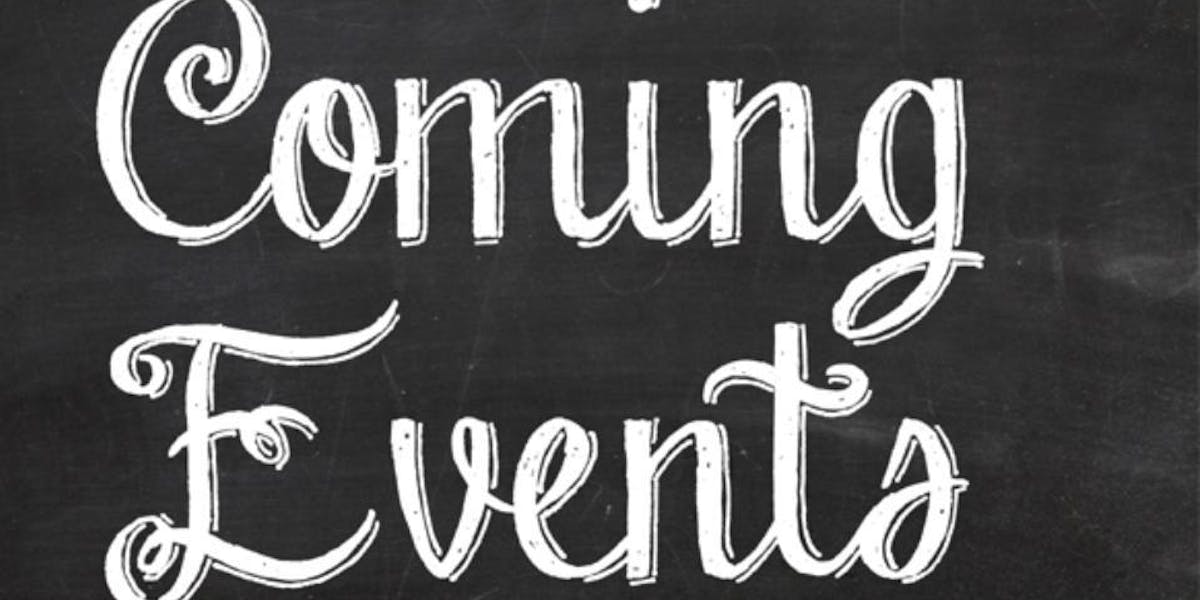 Coming
Events